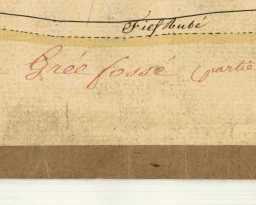 Fief Aubé
Grée fossé (partie